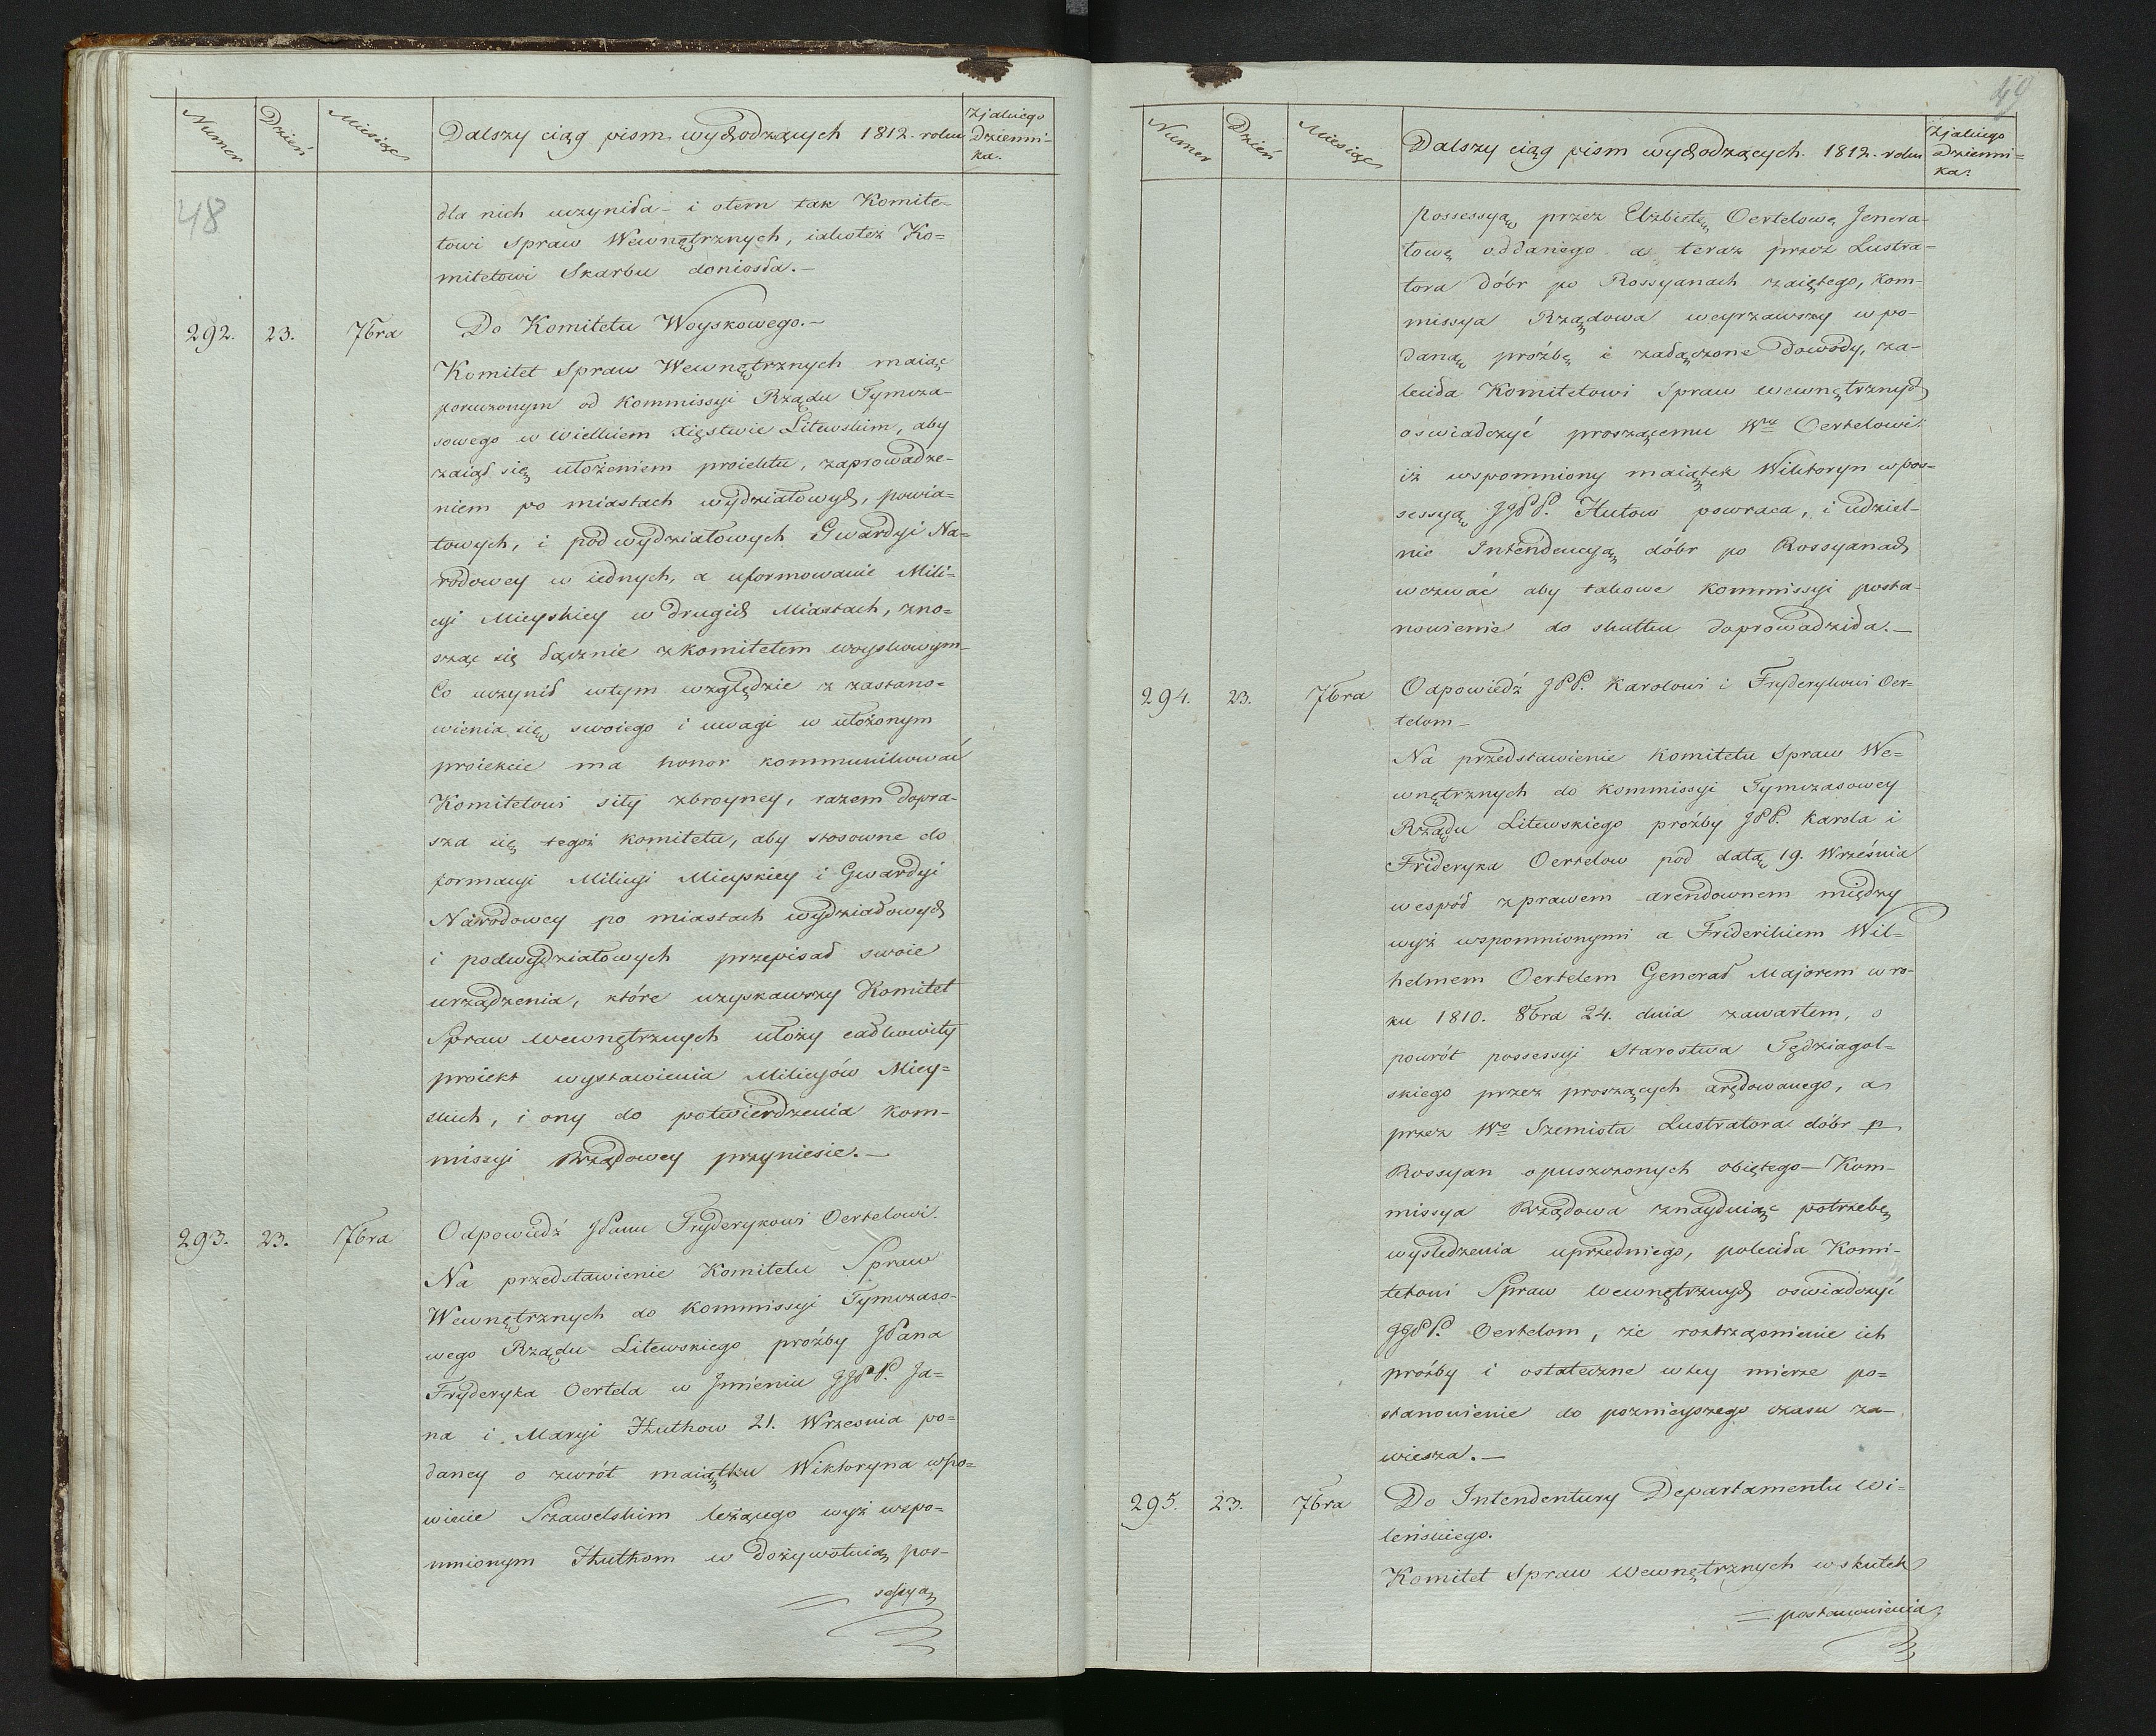 Numer
Dzień
Miesiąc
Dalszy ciąg pism wychodzących 1812. roku
Z jakiego
Dzienni-
ka.
48
dla nich uczyniła i otem tak Komite-
towi Spraw Wewnętrznych, iakoteż Ko=
mitetowi Skarbu doniosła.-
292. 23. 7bra Do Komitetu Woyskowego.-
Komitet Spraw Wewnętrznych maiąc
poruczonym od Kommissyi Rządu Tymcza-
sowego w Wielkiem Xięstwie Litewskim, aby
zaiął się ułożeniem proiektu, zaprowadze-
niem po miastach wydziałowych, powia=
towych, i podwydziałowych Gwardyi Na=
rodowey w iednych, a uformowanie Mili=
cyi Mieyskiey w drugich Miastach, zno=
sząc się łącznie z Komitetem woyskowym-
Co uczynił wtym względzie z zastano=
wienia się swoiego i uwagi w ułożonym
proiekcie ma honor kommunikować
Komitetowi siły zbroyney, razem dopra-
sza się tegoż komitetu, aby stosowne do
formacyi Milicyi Mieyskiey i Gwardyi
Narodowey po miastach wydziałowych
i podwydziałowych przepisał swoie
urządzenia, które uzyskawszy Komitet
Spraw Wewnętrznych ułoży całkowity
proiekt wystawienia Milicyów Miey=
skich, i ony do potwierdzenia Kom-
missyi Rządowey przyniesie.-
293. 23. 7bra Odpowiedź JPanu Fryderykowi Oertelowi.
Na przedstawienie Komitetu Spraw
Wewnętrznych do Kommissyi Tymczaso-
wego Rządu Litewskiego proźby JPana
Fryderyka Oertela w Jmieniu JJPP. Ja=
na i Maryi Huthow 21. Wrzesnia po=
daney o zwrót maiątku Wiktoryna w po=
wiecie Szawelskim leżącego wyż wspo=
mnionym Huthom w dożywotnią pos-
= sessyą
49
Numer
Dzień
Miesiąc
Dalszy ciąg pism wychodzących. 1812. roku
Z jakiego
Dzienni=
ka.
possessyą przez Elzbietę Oertelowę Jenera-
łową oddaniego a teraz przez Lustra=
tora dóbr po Rossyanach zaiętego, Kom-
missya Rządowa weyrzawszy w po-
daną próźbę i załączone Dowody, za-
leciła Komitetowi Spraw wewnętrznych
oświadczyć proszącemu Wu Oertelowi:
iż wspomniony maiątek Wiktoryn w pos=
sessyą JJPP. Hutow powraca, i udziel-
nie Intendencyą dóbr po Rossyanach
wezwać aby takowe Kommissyi posta-
nowienie do skutku doprowadziła.-
294. 23. 7bra Odpowiedź JPP. Karolowi i Fryderykowi Oer=
telom-
Na przedstawienie Komitetu Spraw We=
wnętrznych do Kommissyi Tymczasowey
Rządu Litewskiego proźby JPP. Karola i
Frideryka Oertelow pod datą 19. Września
wespół z prawem arendownem między
wyż wspomnionymi a Friderikiem Wil=
helmem Oertelem Generał Majorem w ro-
ku 1810. 8bra 24. dnia zawartem, o
powrót possessyi Starostwa Tędziagol=
skiego przez proszących arędowanego, a
przez Wo Szemiota Lustratora dóbr p
Rossyan opuszczonych obiętego- Kom-
missya Rządowa znayduiąc potrzebę
wysledzenia uprzedniego, poleciła Komi-
tetowi Spraw wewnętrznych oświadczyć
JJPP. Oertelom, że roztrząsnienie ich
próżby i ostateczne w tey mierze po=
stanowienie do poznieyszego czasu za-
wiesza.-
295. 23. 7bra Do Intendentury Departamentu Wi-
leńskiego.
Komitet Spraw Wewnętrznych w skutek
= postanowienia